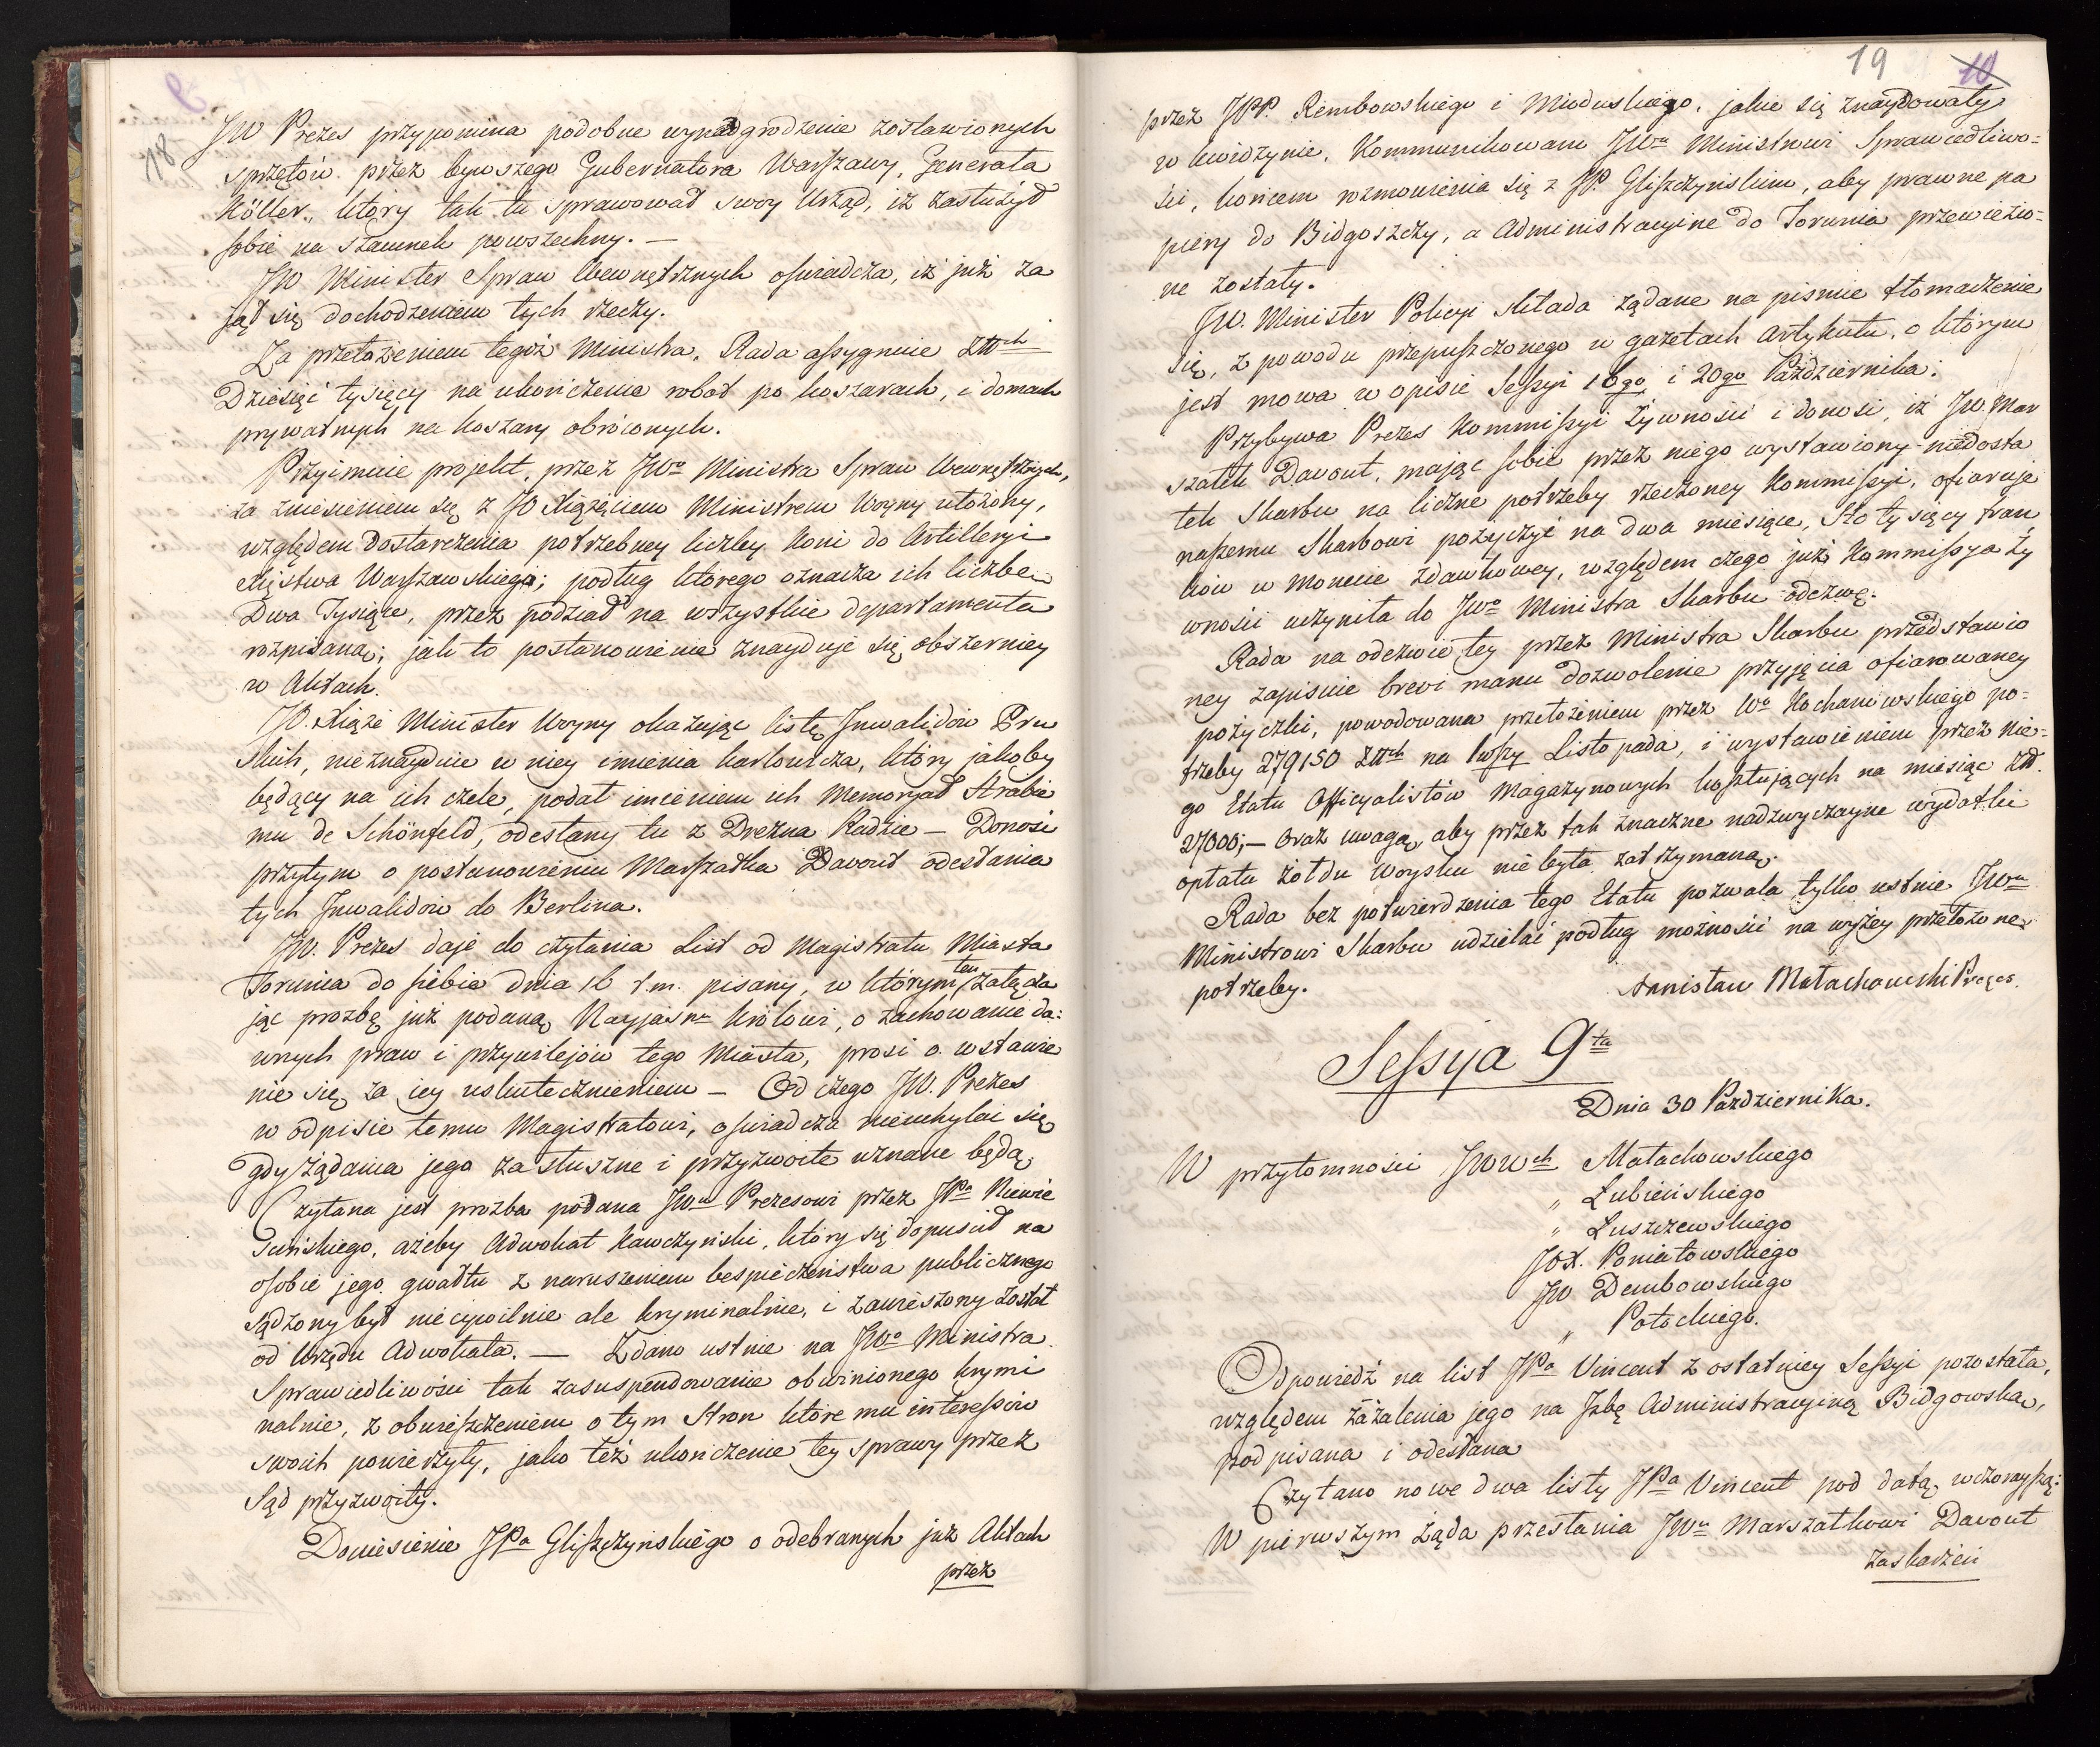 18
JW Prezes przypomina podobne wynadgrodzenie zostawionych
sprzętów przez bywszego Gubernatora Warszawy, Generała
Köller, który tak tu sprawował swoy Urząd, iż zasłużył
sobie na szacunek powszechny. —
JW Minister Spraw Wewnętrznych oświadcza, iż już za
jął się dochodzeniem tych rzeczy.
Za przełożeniem tegoż Ministra, Rada assygnuie Złłch
Dziesięć tysięcy na ukończenie robot po koszarach, i domach
prywatnych na koszary obróconych.
Przyimuie projekt, przez JWo Ministra Spraw Wewnętrznych,
za zniesieniem się z JO Xiążęciem Ministrem Woyny ułożony,
względem dostarczenia potrzebney liczby koni do Artilleryi
Xięstwa Warszawskiego; podług którego oznacza ich liczbę
Dwa Tysiące, przez podział na wszystkie departamenta
rozpisaną; jak to postanowienie znayduje się obszerniey
w Aktach.
JO. Xiąże Minister Woyny okazując listę Inwalidów Pru
skich, nieznayduie w niey imienia Karłowicza, który jakoby
będący na ich czele, podał imieniem ich Memoryał Hrabie
mu de Schönfeld, odesłany tu z Drezna Radzie — Donosi
przytym o postanowieniu Marszałka Davout odesłania
tych Inwalidów do Berlina.
JW. Prezes daje do czytania List od Magistratu Miasta
Torunia do siebie dnia 16 t.m. pisany, w którym ten załącza
jąc prozbę już podaną Nayjaśnu Królowi, o zachowanie da:
wnych praw i przywilejów tego Miasta, prosi o wstawie
nie się za iey uskutecznieniem — Od czego JW. Prezes
w odpisie temu Magistratowi, oświadcza nieuchylać się
gdy żądania jego za słuszne i przyzwoite uznane będą.
Czytana jest prozba podana JWu Prezesowi przez JPa Niewie
ścińskiego, ażeby Adwokat Kawczyński, który się dopuścił na
osobie jego gwałtu z naruszeniem bespieczeństwa publicznego
sądzony był nie cywilnie ale kryminalnie, i zawieszony został
od Urzędu Adwokata. — Zdano ustnie na JWo Ministra
Sprawiedliwości tak zasuspendowanie obwinionego krymi
nalnie, z obwieszczeniem o tym Stron które mu interessów
swoich powierzyły, jako też ukończenie tey sprawy przez
Sąd przyzwoity.
Doniesienie JPa Gliszczyńskiego o odebranych już Aktach
przez
19 10
przez JPP. Rembowskiego i Mioduskiego, jakie się znaydowały
w Kwidzynie, Kommunikowane JWu Ministrowi Sprawiedliwo=
ści, końcem rozmowienia się z JP. Gliszczyńskim, aby prawne pa
piery do Bidgoszczy, a Administracyine do Torunia przewiezio=
ne zostały.
JW. Minister Policyi składa żądane na pismie tłomaczenie
się, z powodu przepuszczonego w gazetach Artykułu, o którym
jest mowa w opisie Sessyi 16go i 20go Października.
Przybywa Prezes Kommissyi Żywności i donosi, iż JW. Mar
szałek Davout, mając sobie przez niego wystawiony niedosta
tek Skarbu na liczne potrzeby rzeczoney Kommissyi, ofiaruje
naszemu Skarbowi pożyczyć na dwa miesiące, Sto tysięcy fran
ków w monecie zdawkowey, względem czego już Kommissya Ży
wności uczyniła do JWo Ministra Skarbu odezwę.
Rada na odezwie tey przez Ministra Skarbu przedstawio
ney zapisuie brevi manu dozwolenie przyjęcia ofiarowaney
pożyczki, powodowana przełożeniem przez Wo Kochanowskiego po=
trzeby 279150 Złłch na 1wszy Listopada, i wystawieniem przez nie=
go Etatu Officyalistów Magazynowych kosztujących na miesiąc Zł.
27000;— oraz uwagą, aby przez tak znaczne nadzwyczayne wydatki
opłata żołdu woysku nie była zatrzymaną.
Rada bez potwierdzenia tego Etatu pozwala tylko ustnie JWu
Ministrowi Skarbu udzielać podług możności na wyżey przełożone
potrzeby.
Stanisław Małachowski Prezes.
Sessya 9ta
Dnia 30 Pazdziernika.
W przytomności JWWch Małachowskiego
" Łubieńskiego
" Łuszczewskiego
JOX. Poniatowskiego
JW Dembowskiego
" Potockiego.
Odpowiedź na list JPa Vincent z ostatniey Sessyi pozostała,
względem zażalenia jego na Izbę Administracyiną Bidgowską,
podpisana i odesłana
Czytano nowe dwa listy JPa Vincent pod datą wczorayszą:
W pierwszym żąda przesłania JWu Marszałkowi Davout
zaskarżeń